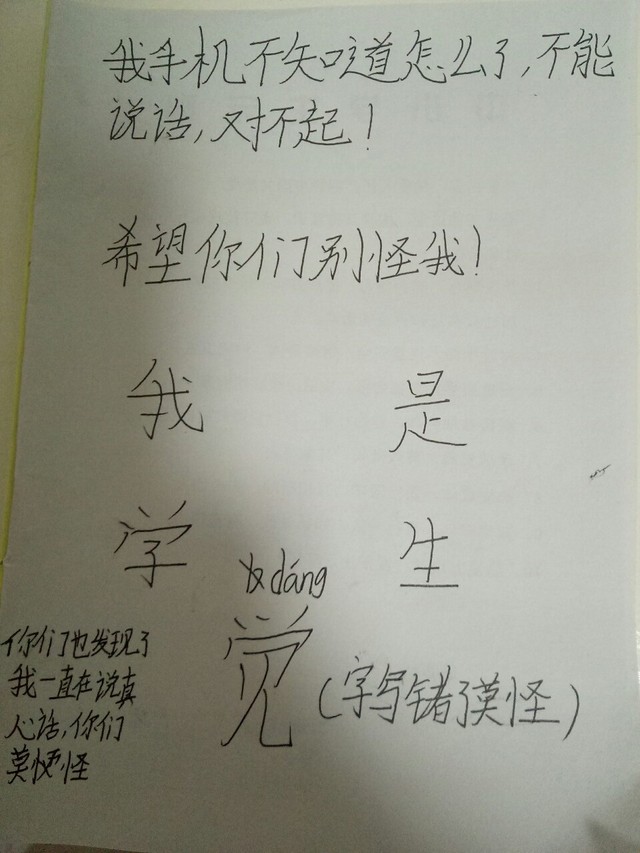 我手机不知道怎么了,不能
说话,对不起!
希望你们别怪我!
我 是
学 生
dáng
觉 (字写错了莫怪)
你们也发现了
我一直在说真
心话,你们
莫怪